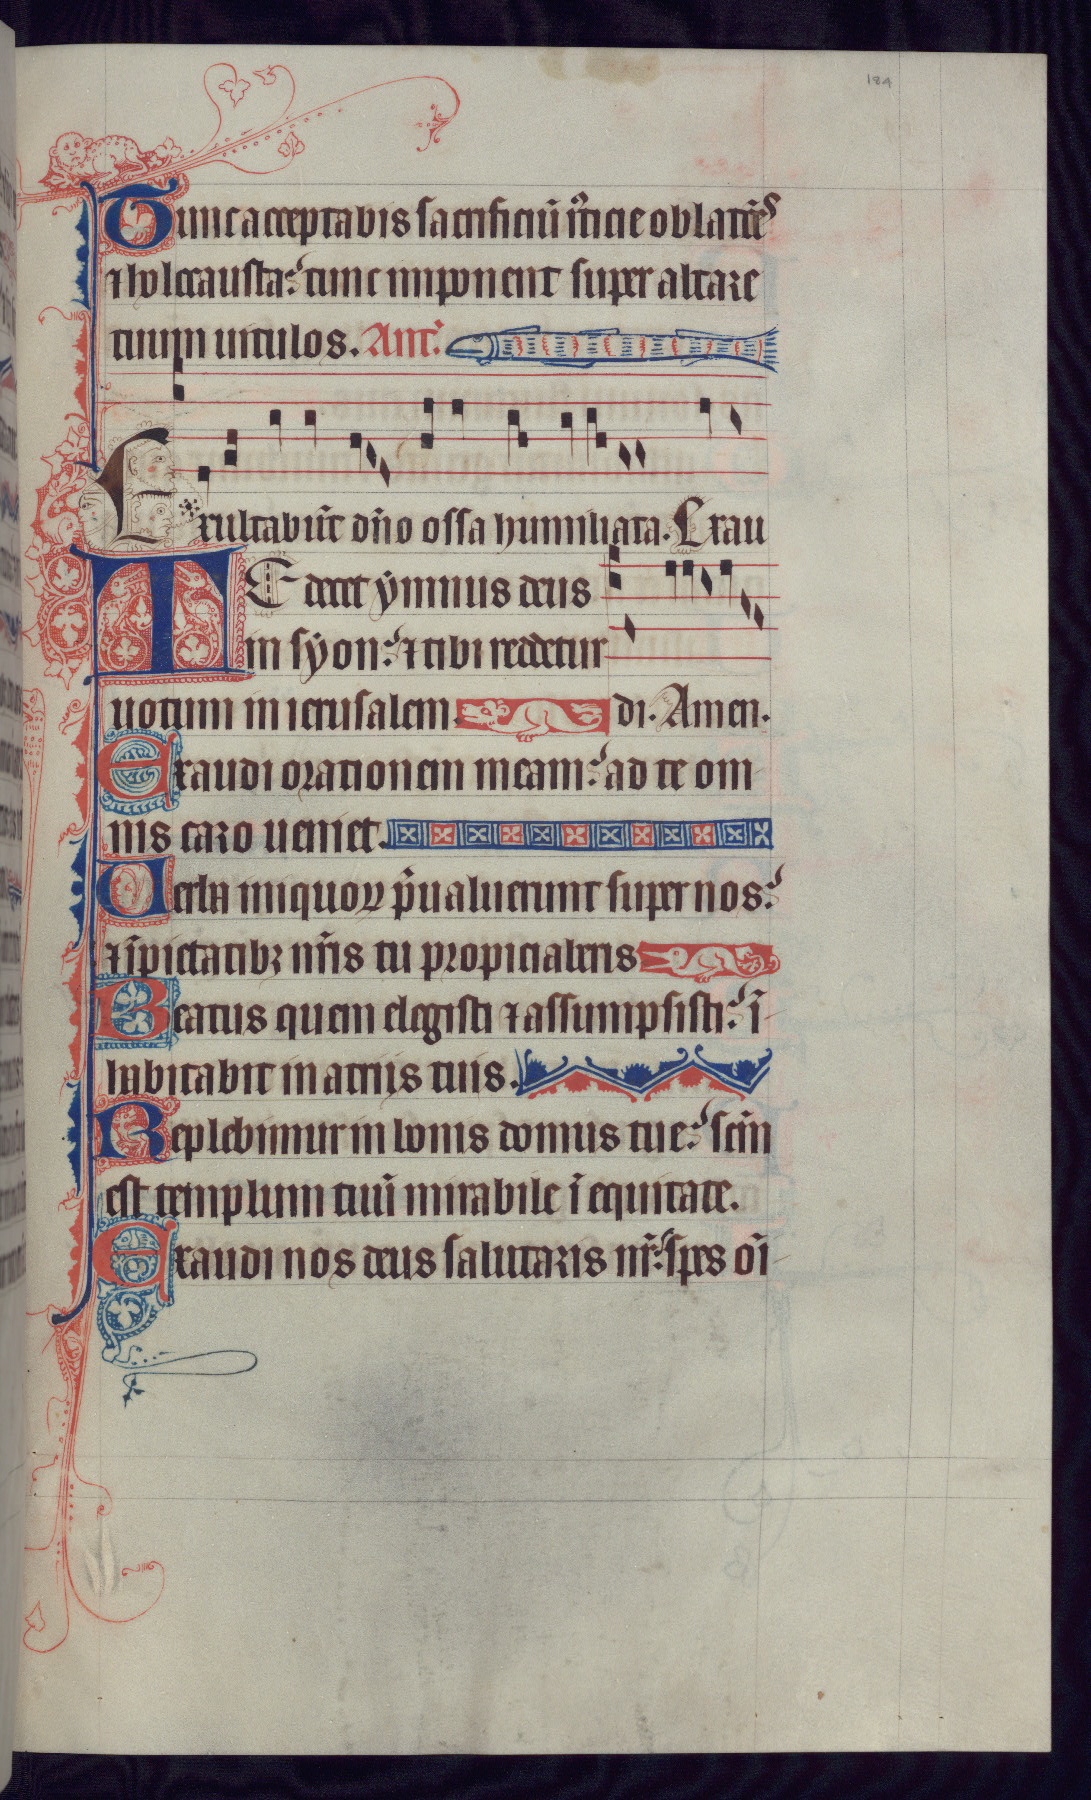 184
Tunc acceptabis sacrificiū iᷤticie oblatiōēs
⁊ holocausta: tunc imponent super altare
tuum uitulos. Ant.
Exultabūt dn̄o ossa humiliata. Exau
TE decet ymnus deus
in syon: ⁊ tibi reddetur
uotum in ierusalem. di. Amen.
Exaudi orationem meam: ad te om
nis caro ueniet.
Uerba iniquoꝝ p̄ualuerunt super nos:
⁊ īpietatibꝫ nr̄is tu propiciaberis
Beatus quem elegisti ⁊ assumpsisti: ī
habitabit in atriis tuis.
Replebimur in bonis domus tue: scm̄
est templum tuū mirabile ī equitate.
Exaudi nos deus salutaris nr̄: spes oī